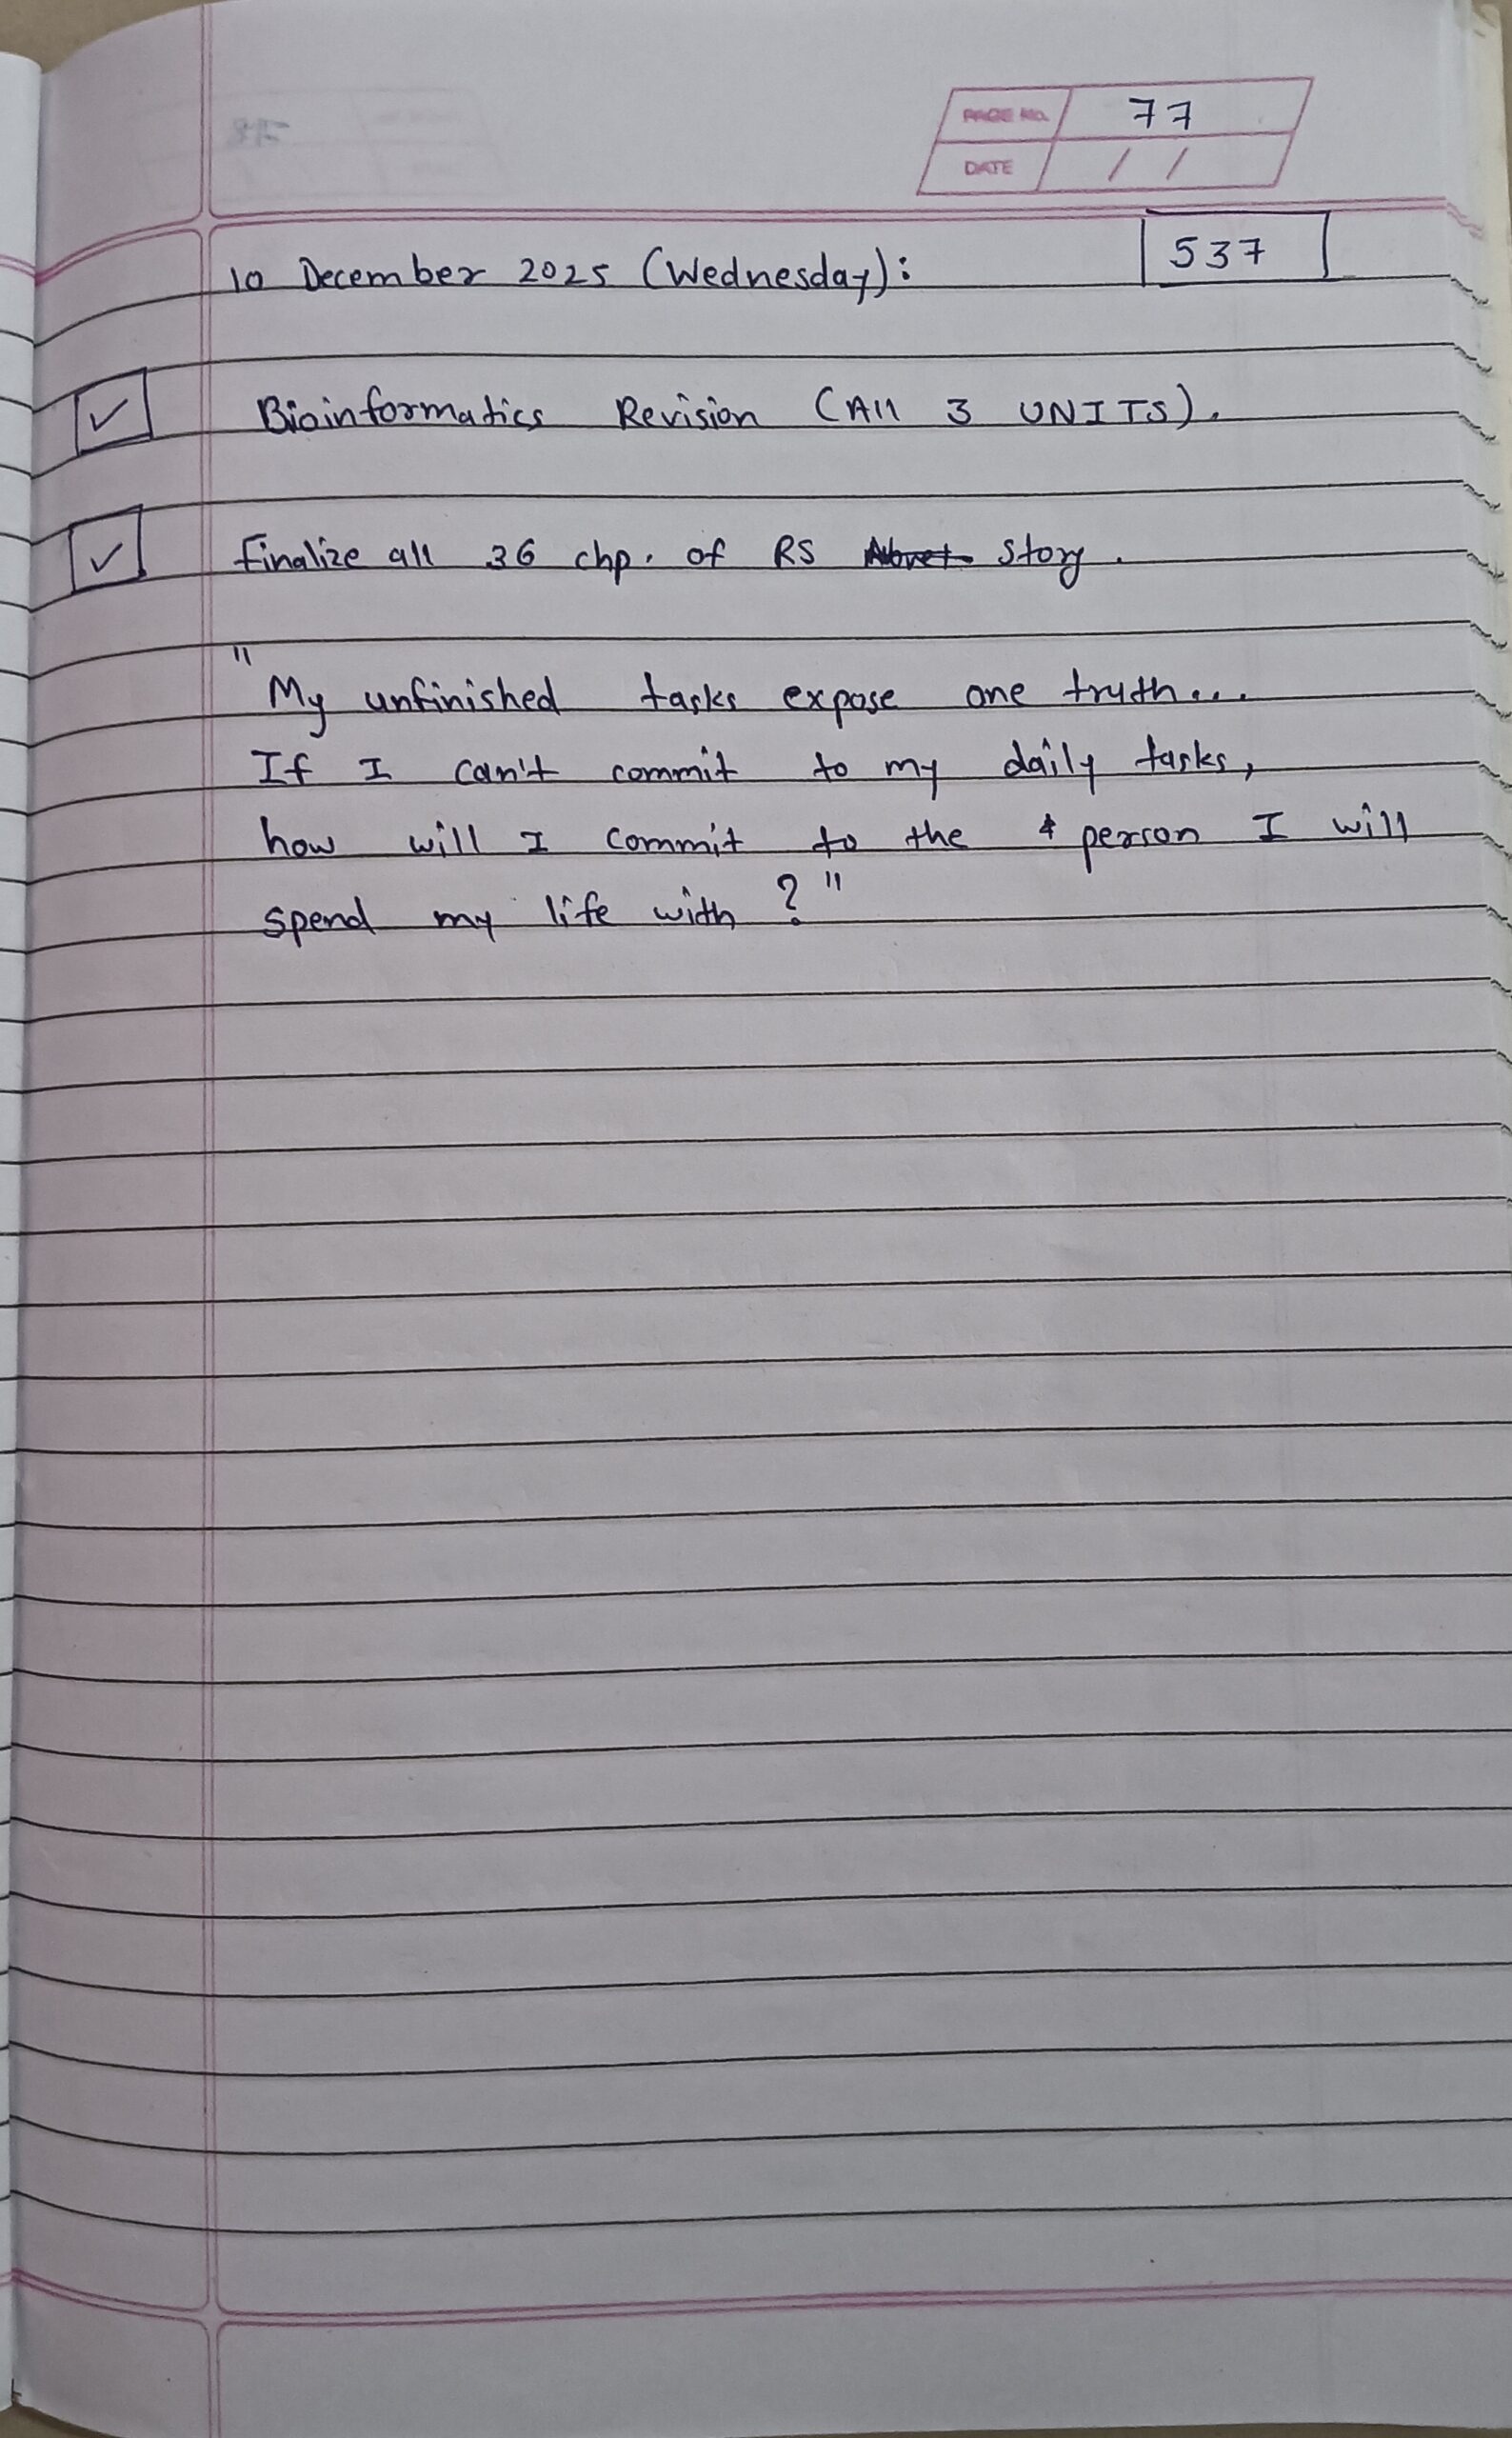 PAGE No. 77
DATE / /
10 December 2025 (Wednesday): 537
Bioinformatics Revision (All 3 UNITS).
Finalize all 36 chp. of RS story.
"My unfinished tasks expose one truth...
If I can't commit to my daily tasks,
how will I commit to the person I will
spend my life with?"